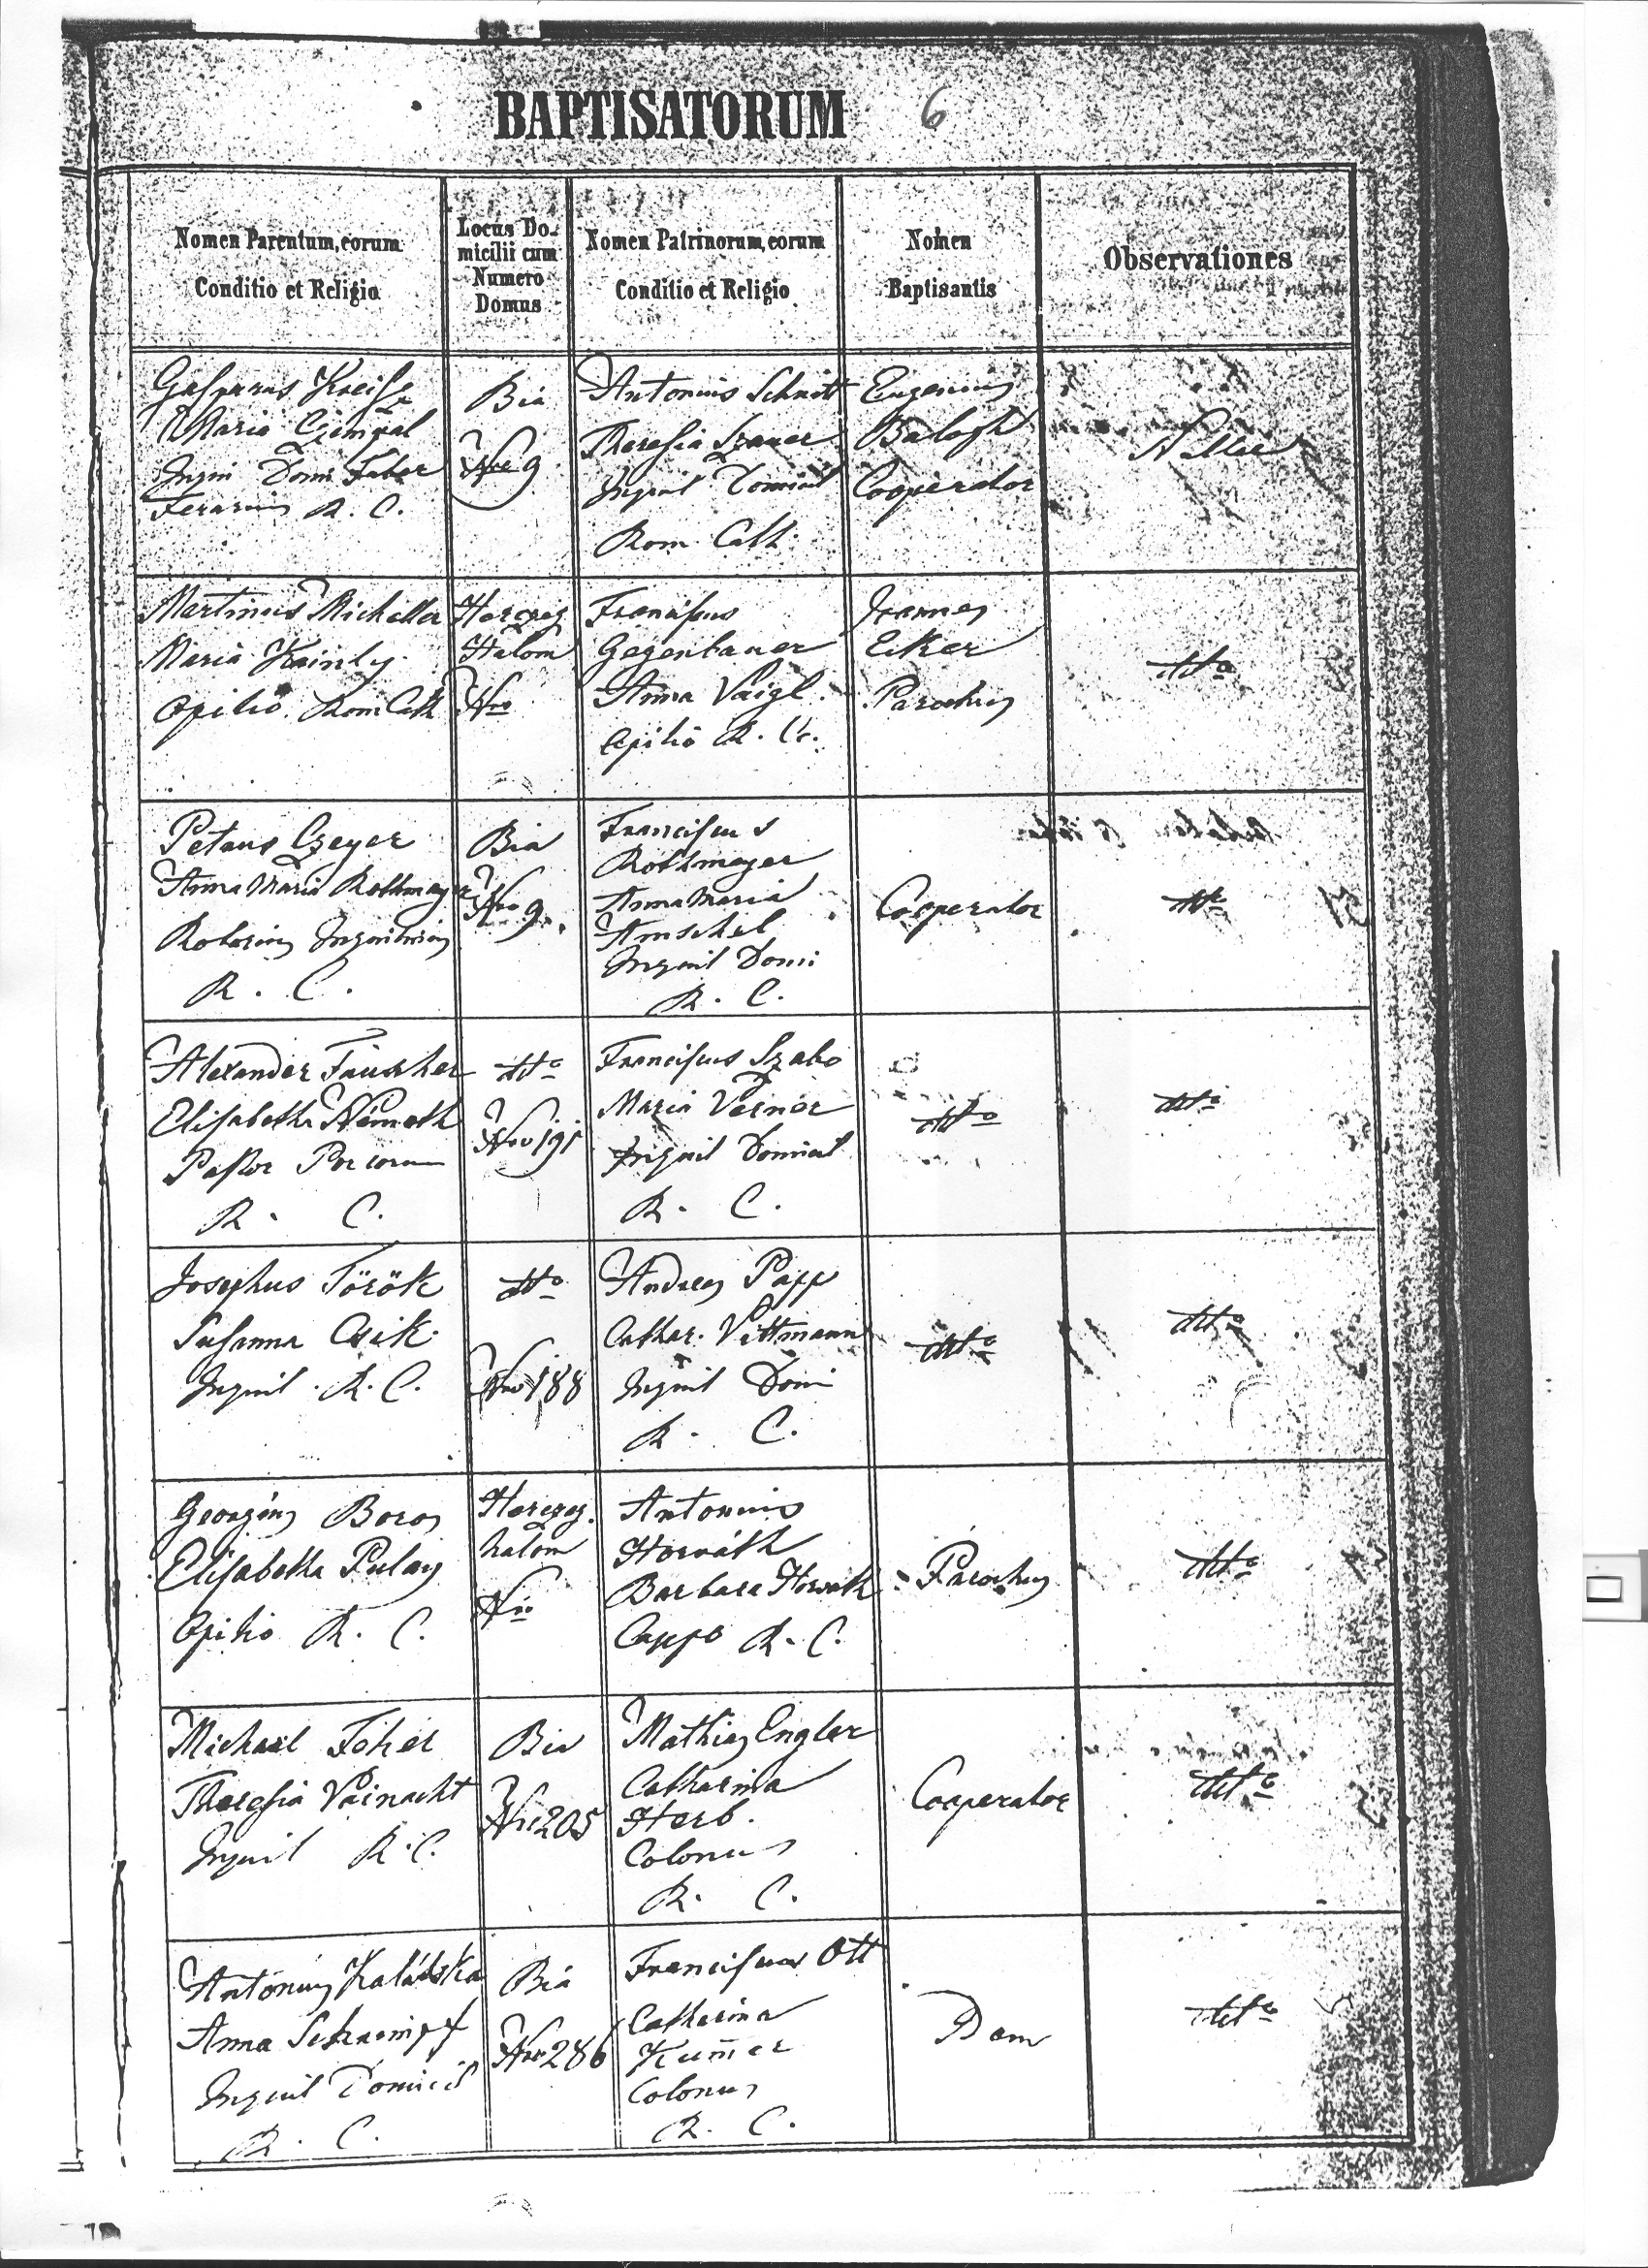 BAPTISATORUM 6
Nomen Parentum, eorum
Conditio et Religio
Locus Do-
micilii cum
Numero
Domus
Nomen Patrinorum, eorum
Conditio et Religio
Nomen
Baptisantis
Observationes
Gasparus Kreisz
Maria Czimpal
Inqui Domi Faber
Ferarius R. C.
Bia
Nro 9
Antonius Schmitt
Theresia Szauer
Inquil Domicil
Rom. Cath.
Eugenius
Balogh
Cooperator
Nullae
Martinus Micheller
Maria Kainly
Opilio Rom Cath
Herczeg
Halom
Nro
Franciscus
Gegenbauer
Anna Vaigl
Opilio R. C.
Joannes
Eiker
Parochus
dtto
Petrus Czeyer
Anna Maria Rothmayer
Rotarius Inquilinus
R. C.
Bia
Nro 9.
Franciscus
Rothmayer
Anna Maria
Amschel
Inquil Domi
R. C.
Cooperator
dtto
Alexander Tauscher
Elisabetha Németh
Pastor Porcorum
R. C.
dtto
Nro 191
Franciscus Szabo
Maria Verner
Inquil Domicil
R. C.
dtto
dtto
Josephus Török
Susanna Csik
Inquil. R. C.
dtto
Nro 188
Andreas Papp
Cathar. Vittmann
Inquil Domi
R. C.
dtto
dtto
Georgius Boros
Elisabetha Pulay
Opilio R. C.
Herczeg.
halom
Nro
Antonius
Horváth
Barbara Horvath
R. C.
Parochus
dtto
Michael Fehér
Theresia Vainacht
Inquil R. C.
Bia
Nro 205
Mathias Engler
Catharina
Herb.
Colonus
R. C.
Cooperator
dtto
Antonius Kalátska
Anna Schrempf
Inquil Domicil
R. C.
Bia
Nro 286
Franciscus Ott
Catharina
Kum̄er
Colonus
R. C.
Dem
dtto